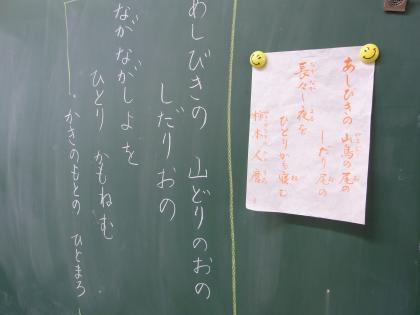 あしびきの 山鳥の尾の
しだり尾の
長々し夜を
ひとりかも寝む
柿本人麿
あしびきの 山どりのおの
しだりおの
ながながしよを
ひとり かもねむ
かきのもとの ひとまろ